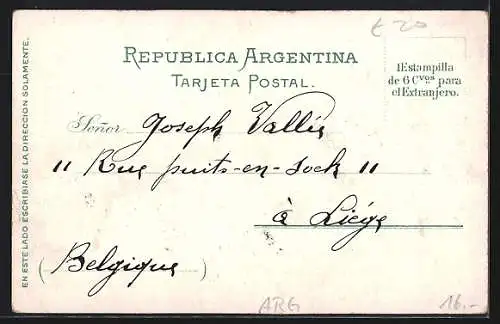 €20
REPUBLICA ARGENTINA
TARJETA POSTAL.
1Estampilla
de 6 Cvos para
el Extranjero.
EN ESTE LADO ESCRIBIASE LA DIRECCION SOLAMENTE.
Señor Joseph Vallée
" Rue puits-en-sock "
à Liége
(Belgique)
ARG
16.-